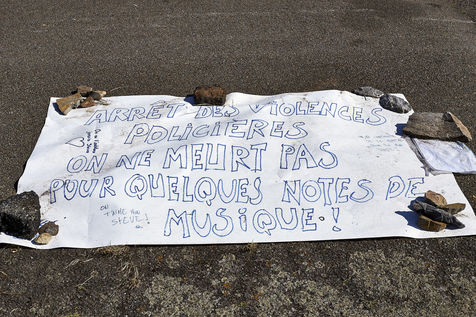 ARRÊT DES VIOLENCES
POLICIÈRES
ON NE MEURT PAS
POUR QUELQUES NOTES DE
MUSIQUE !
ON
T'AIME
STEVE !